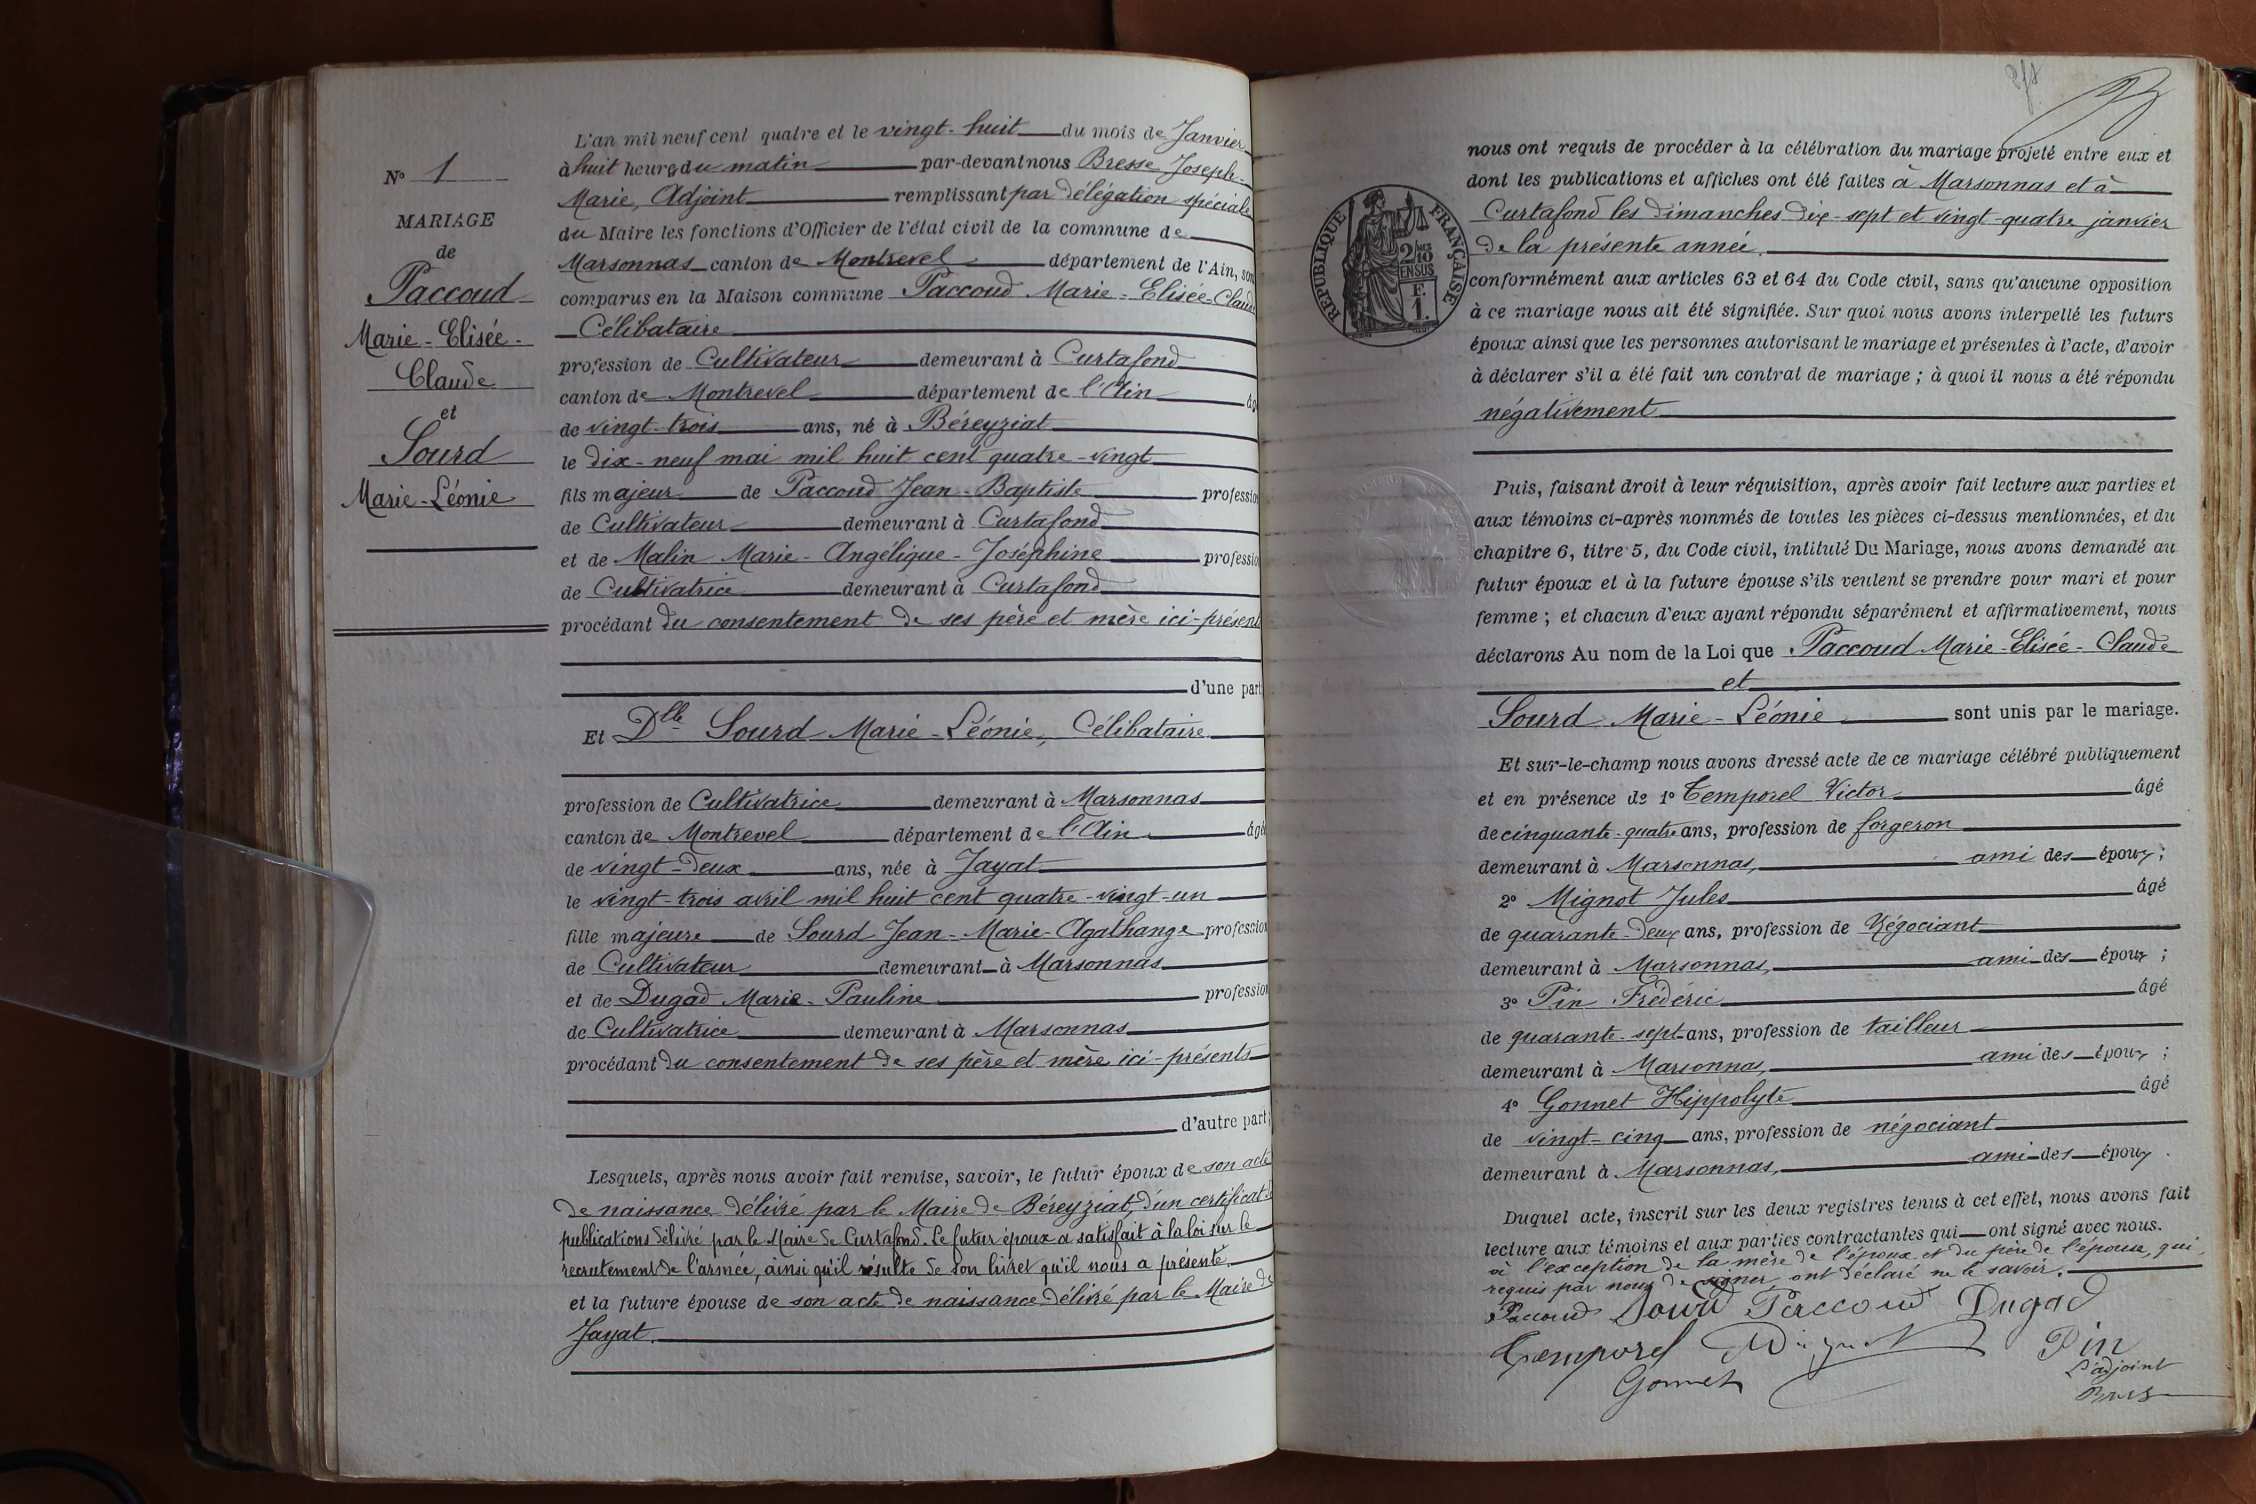 L'an mil neuf cent quatre et le vingt-huit du mois de Janvier
à huit heures du matin par-devant nous Bresse Joseph-
Marie, Adjoint remplissant par délégation spéciale
du Maire les fonctions d'Officier de l'état civil de la commune de
Marsonnas canton de Montrevel département de l'Ain, son
comparus en la Maison commune Paccoud Marie-Elisée-Claude
Célibataire
profession de Cultivateur demeurant à Curtafond
canton de Montrevel département de l'Ain âg
de vingt-trois ans, né à Béreyziat
le dix-neuf mai mil huit cent quatre-vingt
fils majeur de Paccoud Jean-Baptiste profession
de Cultivateur demeurant à Curtafond
et de Malin Marie-Angélique-Joséphine profession
de Cultivatrice demeurant à Curtafond
procédant du consentement de ses père et mère ici-présent
d'une part
Et Dlle Sourd Marie-Léonie, Célibataire
profession de Cultivatrice demeurant à Marsonnas
canton de Montrevel département de l'Ain âgé
de vingt-deux ans, née à Jayat
le vingt-trois avril mil huit cent quatre-vingt-un
fille majeure de Sourd Jean-Marie-Agathange profession
de Cultivateur demeurant à Marsonnas
et de Dugad Marie-Pauline profession
de Cultivatrice demeurant à Marsonnas
procédant du consentement de ses père et mère ici-présents
d'autre part;
Lesquels, après nous avoir fait remise, savoir, le futur époux de son acte
de naissance délivré par le Maire de Béreyziat, d'un certificat de
publications délivré par le Maire de Curtafond. Le futur époux a satisfait à la loi sur le
recrutement de l'armée, ainsi qu'il résulte de son livret qu'il nous a présenté.
et la future épouse de son acte de naissance délivré par le Maire de
Jayat.
N° 1
MARIAGE
de
Paccoud
Marie-Elisée-
Claude
et
Sourd
Marie-Léonie
nous ont requis de procéder à la célébration du mariage projeté entre eux et
dont les publications et affiches ont été faites à Marsonnas et à
Curtafond les dimanches dix-sept et vingt-quatre janvier
de la présente année.
conformément aux articles 63 et 64 du Code civil, sans qu'aucune opposition
à ce mariage nous ait été signifiée. Sur quoi nous avons interpellé les futurs
époux ainsi que les personnes autorisant le mariage et présentes à l'acte, d'avoir
à déclarer s'il a été fait un contrat de mariage ; à quoi il nous a été répondu
négativement
Puis, faisant droit à leur réquisition, après avoir fait lecture aux parties et
aux témoins ci-après nommés de toutes les pièces ci-dessus mentionnées, et du
chapitre 6, titre 5, du Code civil, intitulé Du Mariage, nous avons demandé au
futur époux et à la future épouse s'ils veulent se prendre pour mari et pour
femme ; et chacun d'eux ayant répondu séparément et affirmativement, nous
déclarons Au nom de la Loi que Paccoud Marie-Elisée-Claude
et
Sourd Marie-Léonie sont unis par le mariage.
Et sur-le-champ nous avons dressé acte de ce mariage célébré publiquement
et en présence de 1° Temporel Victor âgé
de cinquante-quatre ans, profession de forgeron
demeurant à Marsonnas, ami des époux ;
2° Mignot Jules âgé
de quarante-deux ans, profession de Négociant
demeurant à Marsonnas, ami des époux ;
3° Pin Frédéric âgé
de quarante-sept ans, profession de tailleur
demeurant à Marsonnas, ami des époux ;
4° Gonnet Hippolyte âgé
de vingt-cinq ans, profession de négociant
demeurant à Marsonnas, ami des époux.
Duquel acte, inscrit sur les deux registres tenus à cet effet, nous avons fait
lecture aux témoins et aux parties contractantes qui ont signé avec nous.
à l'exception de la mère de l'époux et du père de l'épouse, qui,
requis par nous de signer, ont déclaré ne le savoir.
Paccoud Sourd Paccoud Dugad
Temporel Mignot Pin
Gonnet L'adjoint
Bresse
RÉPUBLIQUE FRANÇAISE
2/10 EN SUS
F.
1.